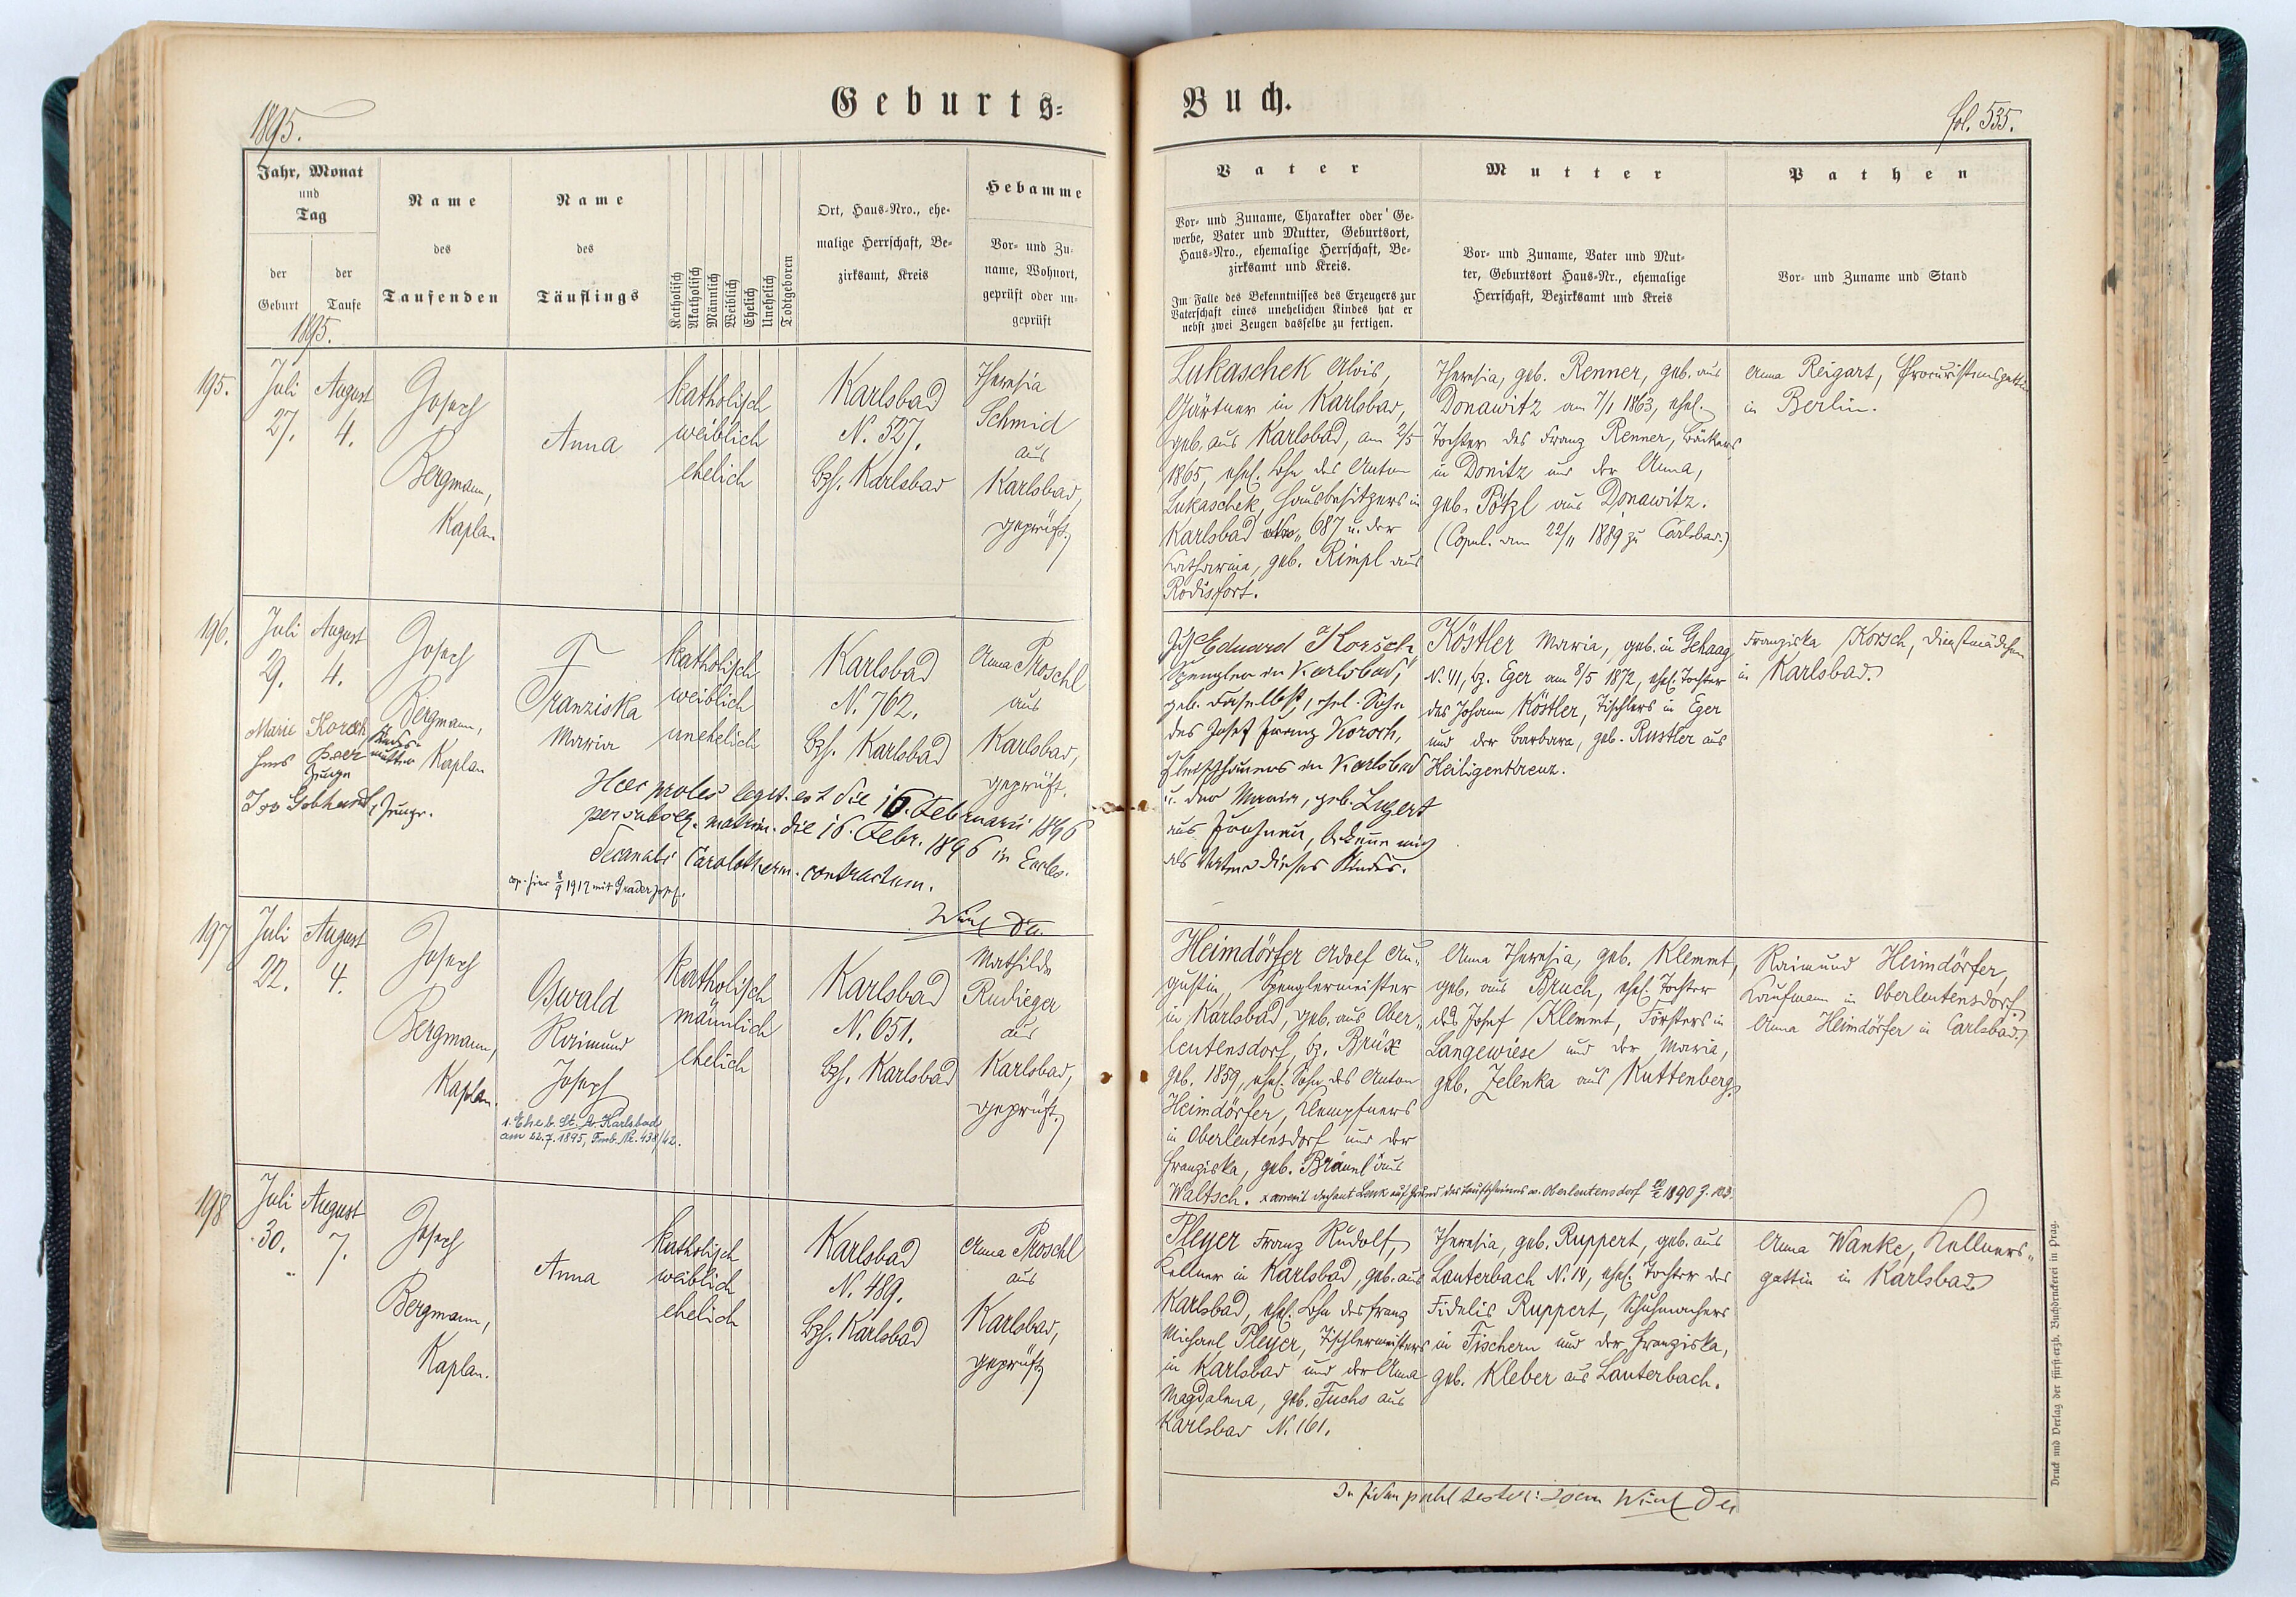 1895.
Geburts=
Jahr, Monat
und
Tag
der
Geburt
der
Taufe
1895.
Name
des
Taufenden
Name
des
Täuflings
Katholisch
Akatholisch
Männlich
Weiblich
Ehelich
Unehelich
Todtgeboren
Ort, Haus-Nro., ehe-
malige Herrschaft, Be-
zirksamt, Kreis
Hebamme
Vor- und Zu-
name, Wohnort,
geprüft oder un-
geprüft
195.
Juli
27.
August
4.
Josef
Bergmann,
Kaplan
Anna
katholisch
weiblich
ehelich
Karlsbad
N. 527.
Bzh. Karlsbad
Theresia
Schmid
aus
Karlsbad,
geprüft.
196.
Juli
29.
August
4.
Josef
Bergmann,
Kaplan
Marie Korsch Kindes-
mutter
Zeuge
Gebhardt, Zeuge.
Franziska
Maria
katholisch
weiblich
unehelich
Karlsbad
N. 762.
Bzh. Karlsbad
Anna Proschl
aus
Karlsbad,
geprüft.
Haec proles legit. est die 16. Februarii 1896
per subseq. matrim. die 16. Febr. 1896 in Eccles.
Decanali Carolotherm. contractum.
cop. hier 8/9 1912 mit Grader Josef.
197
Juli
22.
August
4.
Josef
Bergmann,
Kaplan.
Oswald
Raimund
Josef
1. Ehe b. St. A. Karlsbad
am 22.7.1895, Fmb. Nr. 438/42.
katholisch
männlich
ehelich
Karlsbad
N. 651.
Bzh. Karlsbad
Mathilde
Rudieger
aus
Karlsbad,
geprüft.
198
Juli
30.
August
7.
Josef
Bergmann,
Kaplan.
Anna
katholisch
weiblich
ehelich
Karlsbad
N. 489.
Bzh. Karlsbad
Anna Proschl
aus
Karlsbad,
geprüft
Buch.
fol. 535.
Vater
Vor- und Zuname, Charakter oder Ge-
werbe, Vater und Mutter, Geburtsort,
Haus-Nro., ehemalige Herrschaft, Be-
zirksamt und Kreis.
Im Falle des Bekenntnisses des Erzeugers zur
Vaterschaft eines unehelichen Kindes hat er
nebst zwei Zeugen dasselbe zu fertigen.
Mutter
Vor- und Zuname, Vater und Mut-
ter, Geburtsort Haus-Nr., ehemalige
Herrschaft, Bezirksamt und Kreis
Pathen
Vor- und Zuname und Stand
Lukaschek Alois,
Gärtner in Karlsbad,
geb. aus Karlsbad, am 2/5
1865, ehel. Sohn des Anton
Lukaschek, Hausbesitzers in
Karlsbad 687 u. der
Katharina, geb. Rimpl aus
Rodisfort.
Theresia, geb. Renner, geb. aus
Donawitz am 7/1 1863, ehel.
Tochter des Franz Renner, Bäckers
in Donitz und der Anna,
geb. Pötzl aus Donawitz.
(Copul. am 22/11 1889 zu Carlsbad.)
Anna Reigart, Procuristensgattin
in Berlin.
Ich Eduard Korsch
Spengler in Karlsbad,
geb. daselbst, ehel. Sohn
des Josef Franz Korsch,
Fleischhauers in Karlsbad
u. der Maria, geb. Lugert
aus Zuohnau, bekenne mich
als Vater dieses Kindes.
Köstler Maria, geb. in Gehaag
N. 41, bz. Eger am 8/5 1872, ehel. Tochter
des Johann Köstler, Tischlers in Eger
und der Barbara, geb. Rustler aus
Heiligenkreuz.
Franziska Korsch, Dienstmädchen
in Karlsbad.
Heimdörfer Adolf Au-
gustin, Spenglermeister
in Karlsbad, geb. aus Ober-
leutensdorf, bz. Brüx
geb. 1859, ehel. Sohn des Anton
Heimdörfer, Klempfners
in Oberleutensdorf und der
Franziska, geb. Bräunl aus
Waltsch. Dechant Lenk auf Grund des Taufscheines v. Oberleutensdorf 1890 Z. 103.
Anna Theresia, geb. Klemmt,
geb. aus Bruch, ehel. Tochter
des Josef Klemmt, Försters in
Langewiese und der Maria,
geb. Zelenka aus Kuttenberg.
Raimund Heimdörfer,
Kaufmann in Oberleutensdorf.
Anna Heimdörfer in Carlsbad.
Pleyer Franz Rudolf,
Kellner in Karlsbad, geb. aus
Karlsbad, ehel. Sohn des Franz
Michael Pleyer, Tischlermeisters
in Karlsbad und der Anna
Magdalena, geb. Fuchs aus
Karlsbad N. 161.
Theresia, geb. Ruppert, geb. aus
Lauterbach N. 14, ehel. Tochter des
Fidelis Ruppert, Schuhmachers
in Fischern und der Franziska,
geb. Kleber aus Lauterbach.
Anna Wanke, Kellners-
gattin in Karlsbad
Druck und Verlag der fürst-erzb. Buchdruckerei in Prag.